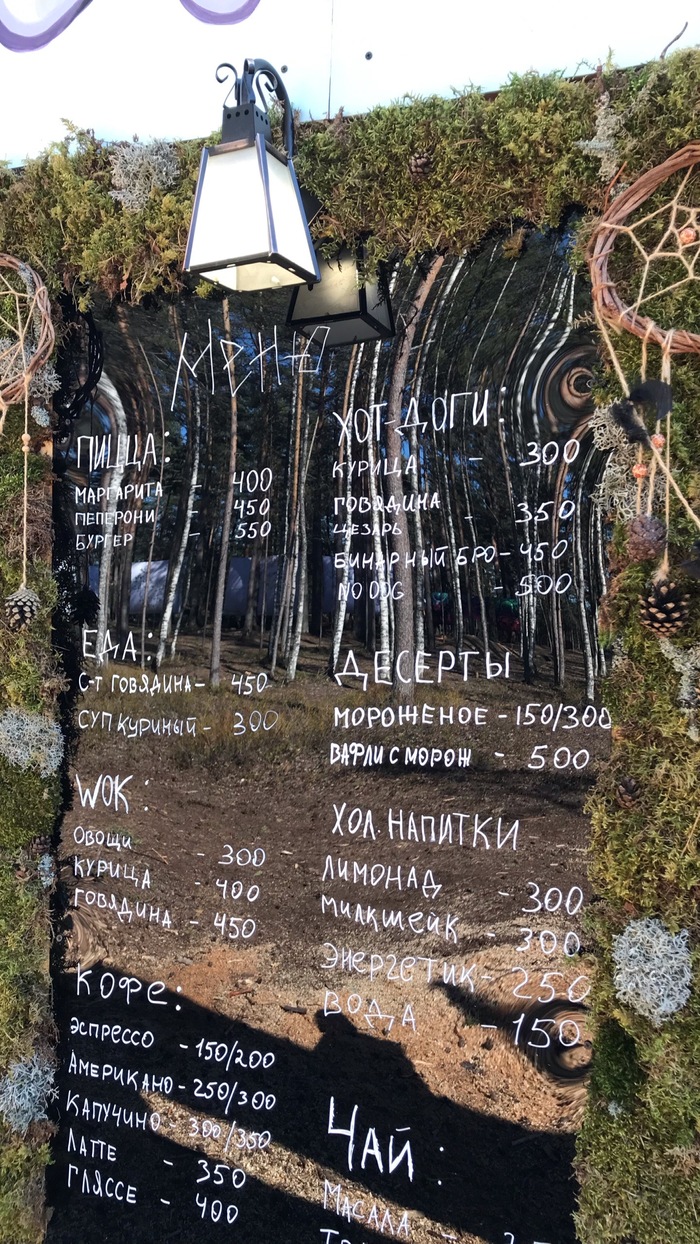 Меню
ПИЦЦА:
МАРГАРИТА - 400
ПЕПЕРОНИ - 450
БУРГЕР - 550
ЕДА:
С-Т ГОВЯДИНА - 450
СУП КУРИНЫЙ - 300
WOK:
ОВОЩИ - 300
КУРИЦА - 400
ГОВЯДИНА - 450
КОФЕ:
ЭСПРЕССО - 150/200
АМЕРИКАНО - 250/300
КАПУЧИНО - 300/350
ЛАТТЕ - 350
ГЛЯССЕ - 400
ХОТ-ДОГИ:
КУРИЦА - 300
ГОВЯДИНА
ЦЕЗАРЬ - 350
БИНАРНЫЙ БРО - 450
NO DOG - 500
ДЕСЕРТЫ
МОРОЖЕНОЕ - 150/300
ВАФЛИ С МОРОЖ - 500
ХОЛ. НАПИТКИ
ЛИМОНАД - 300
МИЛКШЕЙК - 300
ЭНЕРГЕТИК - 250
ВОДА - 150
ЧАЙ:
МАСАЛА -